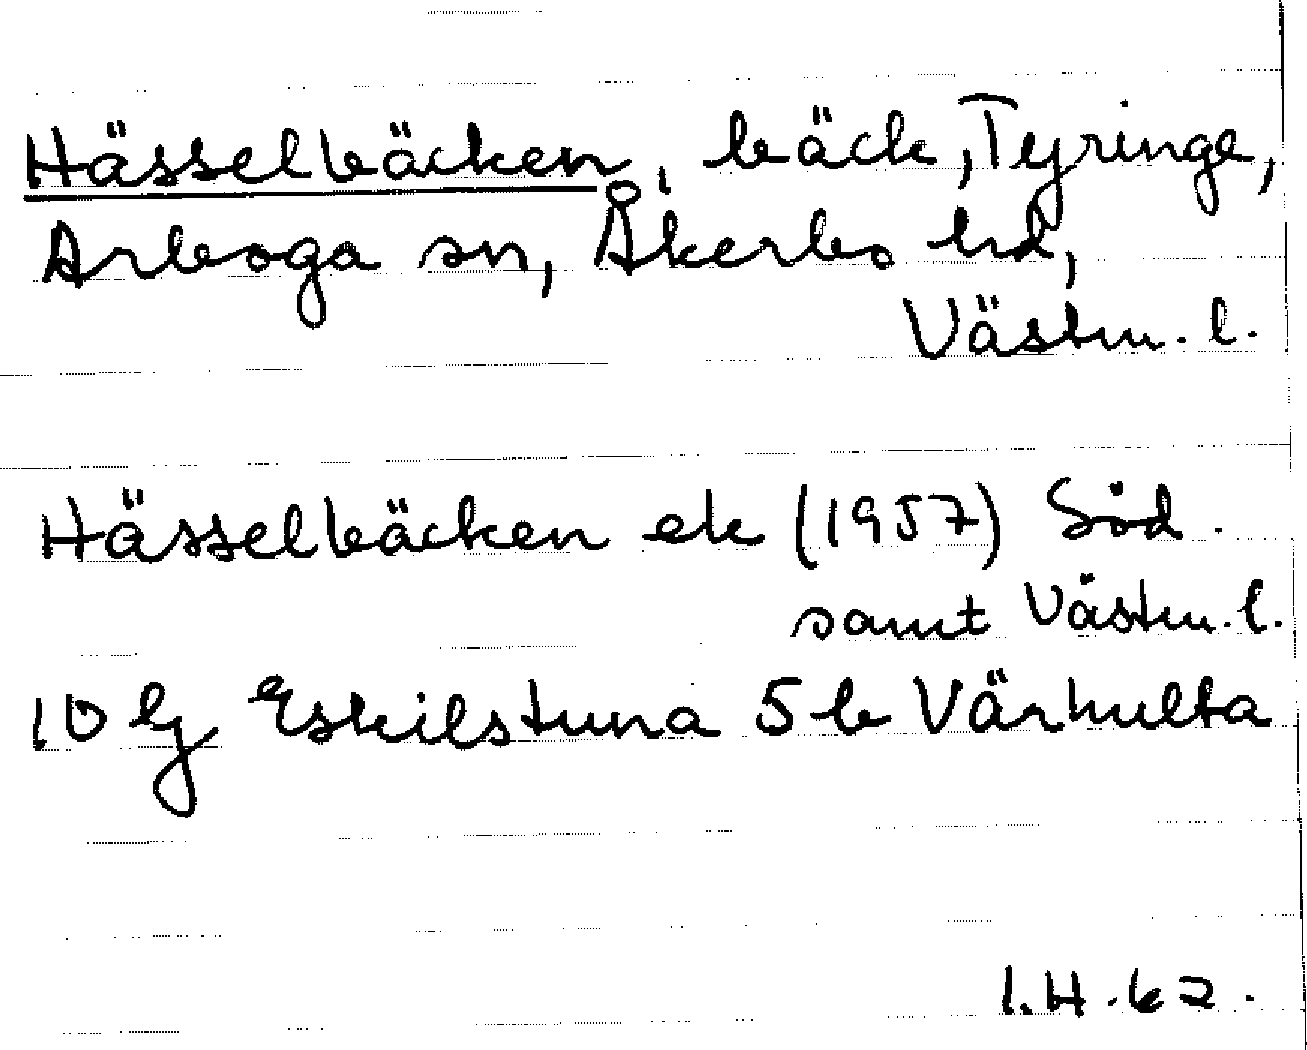 Hässelbäcken, bäck, Tyringe,
Arboga sn, Åkerbo hd,
Västm. l.
Hässelbäcken ek (1957) Söd.
samt Västm. l.
10 G Eskilstuna 5 b Värhulta
I.H. 62.